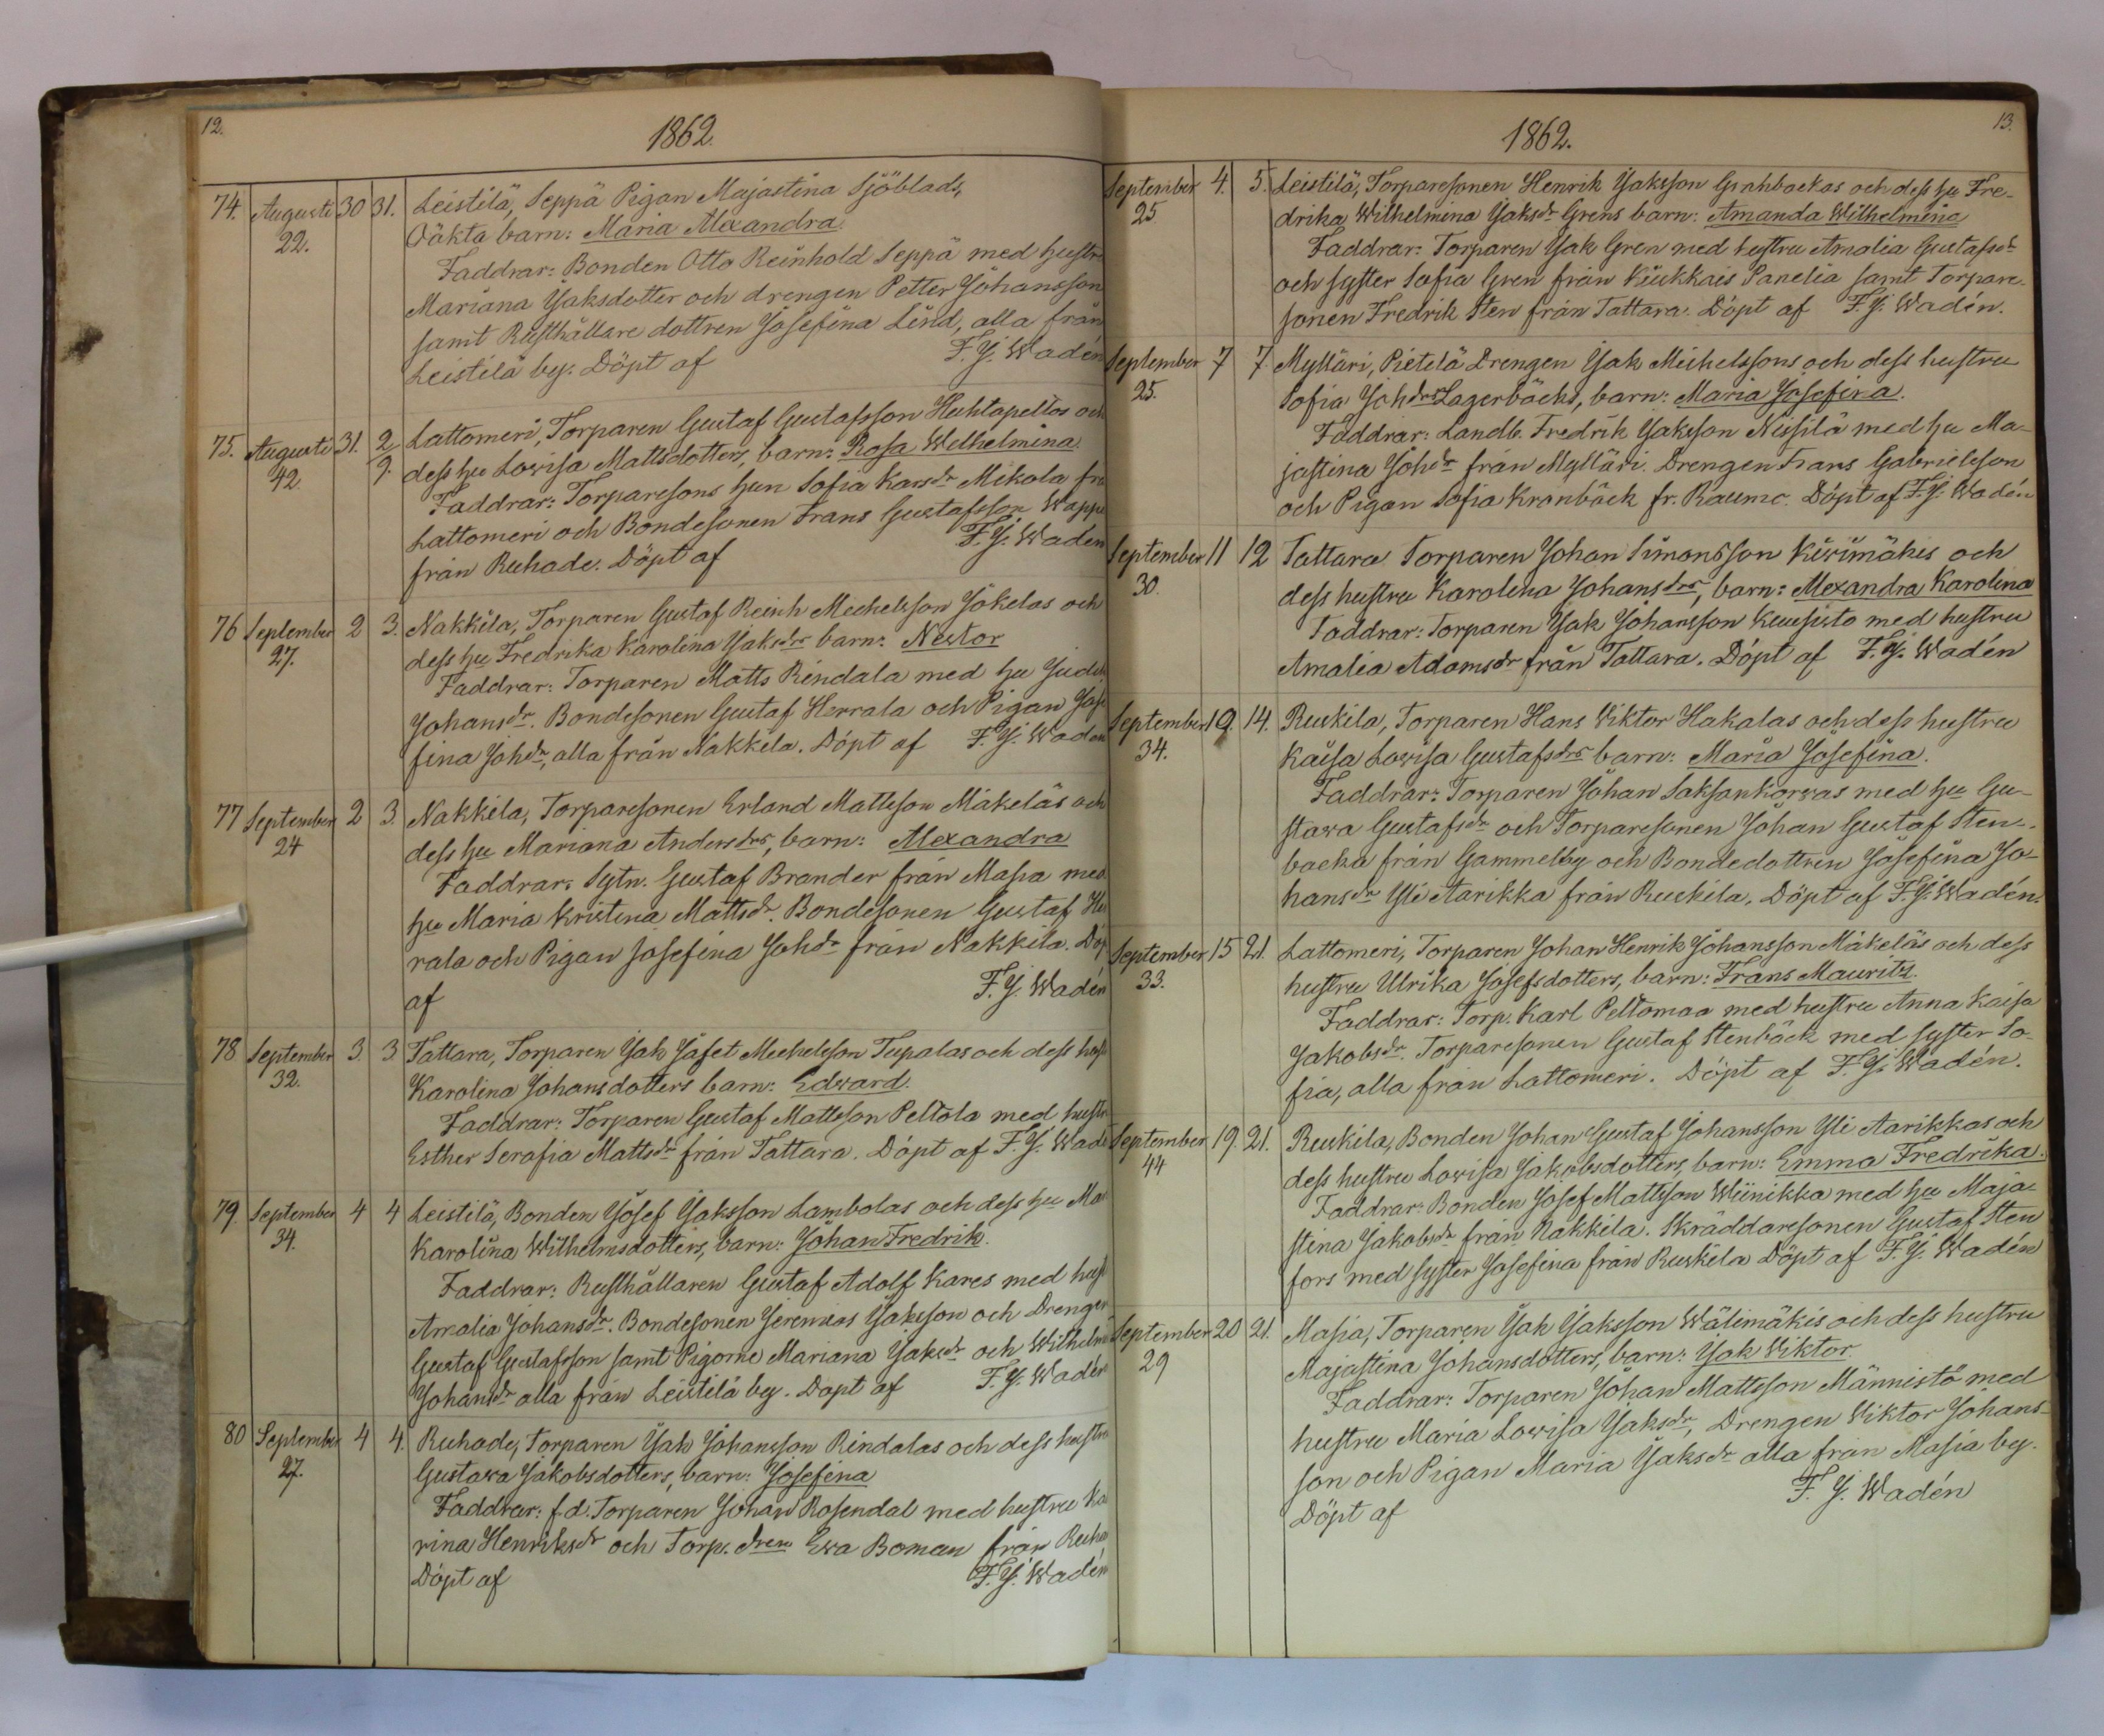 12.
1862.
74. Augusti 30 31. Leistilä, Seppä Pigan Majastina Sjöblads,
22. Oäkta barn: Maria Alexandra.
Faddrar: Bonden Otto Reinhold Seppä med hustr
Mariana Jaksdotter och drengen Petter Johansson
samt Rusthållare dottren Josefina Lind, alla från
Leistilä by. Döpt af F. J. Wadén
75. Augusti 31. 2 Lattomeri, Torparen Gustaf Gustafsson Huhtapeltos och
42. 9. dess hu Lowisa Mattsdotters, barn: Rosa Wilhelmina.
Faddrar: Torparesons hun Sofia Karsdr Mikola fr
Lattomeri och Bondesonen Frans Gustafsson Wappu
från Ruhade. Döpt af F. J. Wadén
76 September 2 3. Nakkila, Torparen Gustaf Reinh Michelsson Jokelas och
27. dess hu Fredrika Karolina Jaksdrs barn: Nestor
Faddrar: Torparen Matts Rindala med hu Judith
Johansdr. Bondesonen Gustaf Herrala och Pigan Jose
fina Johdr, alla från Nakkila. Döpt af F. J. Waden
77 September 2 3. Nakkila, Torparesonen Erland Mattsson Mäkeläs och
24 dess hu Mariana Andersdrs, barn: Alexandra
Faddrar: Sytn. Gustaf Brander från Masia med
hu Maria Kristina Mattsdr. Bondesonen Gustaf Her
rala och Pigan Josefina Johdr från Nakkila. Döp
af F. J. Wadén
78 September 3. 3 Tattara, Torparen Jak Jafet Michelsson Tupalas och dess hust
32. Karolina Johansdotters barn: Edward.
Faddrar: Torparen Gustaf Mattsson Peltola med hustr
Esther Serafia Mattsdr från Tattara. Döpt af F. J. Wadé
79 September 4 4 Leistilä, Bonden Josef Jaksson Lambolas och dess hu Ma
34. Karolina Wilhelmsdotters, barn: Johan Fredrik.
Faddrar: Rusthållaren Gustaf Adolf Kares med hust
Amalia Johansdr. Bondesonen Jeremias Jaksson och Drengen
Gustaf Gustafsson samt Pigorne Mariana Jaksdr och Wilhelm
Johansdr alla från Leistilä by. Döpt af F. J. Wadén
80 September 4 4. Ruhade, Torparen Jak Johansson Rindalas och dess hustru
27. Gustawa Jakobsdotters, barn: Josefina
Faddrar: f.d. Torparen Johan Rosendal med hustru Ka
rina Henriksdr och Torp. dren Ewa Boman från Ruha
Döpt af F. J. Wadén
13.
1862.
September 4. 5. Leistilä, Torparesonen Henrik Jaksson Grahbackas och dess hu Fre-
25. drika Wilhelmina Jaksdr Grens barn: Amanda Wilhelmina
Faddrar: Torparen Jak Gren med hustru Amalia Gustafsdr
och syster Sofia Gren från Kiukkais Panelia samt Torpare-
sonen Fredrik Sten från Tattara. Döpt af F. J. Wadén.
September 7 7. Mylläri, Pietilä Drengen Jak Michelssons och dess hustru
25. Sofia Johdrs Lagerbäcks, barn: Maria Josefina.
Faddrar: Landb. Fredrik Jaksson Nissilä med hu Ma-
jastina Johdr från Mylläri. Drengen Frans Gabrielsson
och Pigan Sofia Kronbäck fr. Raumo. Döpt af F. J. Wadén
September 11 12 Tattara Torparen Johan Simonsson Kiwimäkis och
30. dess hustru Karolina Johansdrs, barn: Alexandra Karolina
Faddrar: Torparen Jak Johansson Kuusisto med hustru
Amalia Adamsdr från Tattara. Döpt af F. J. Wadén
September 19. 14. Ruskila, Torparen Hans Wiktor Hakalas och dess hustru
34. Kaisa Lowisa Gustafsdrs barn: Maria Josefina.
Faddrar: Torparen Johan Saksankorwas med hu Gu-
stawa Gustafsdr och Torparesonen Johan Gustaf Sten-
backa från Gammelby och Bondedottren Josefina Jo-
hansdr Yli Aarikka från Ruskila. Döpt af F. J. Wadén.
September 15 21. Lattomeri, Torparen Johan Henrik Johansson Mäkeläs och dess
33. hustru Ulrika Josefsdotters, barn: Frans Mauritz.
Faddrar: Torp. Karl Peltomaa med hustru Anna Kaisa
Jakobsdr. Torparesonen Gustaf Stenbäck med syster So-
fia, alla från Lattomeri. Döpt af F. J. Wadén.
September 19. 21. Ruskila, Bonden Johan Gustaf Johansson Yli Aarikkas och
44 dess hustru Lowisa Jakobsdotters, barn: Emma Fredrika.
Faddrar: Bonden Josef Mattsson Wiinikka med hu Maja-
stina Jakobsdr från Nakkila. Skräddaresonen Gustaf Sten
fors med syster Josefina från Ruskila Döpt af F. J. Wadén
September 20 21. Masia, Torparen Jak Jaksson Wälimäkis och dess hustru
29 Majastina Johansdotters, barn: Jak Wiktor.
Faddrar: Torparen Johan Mattsson Männistö med
hustru Maria Lowisa Jaksdr, Drengen Wiktor Johans-
son och Pigan Maria Jaksdr alla från Masia by.
Döpt af F. J. Wadén